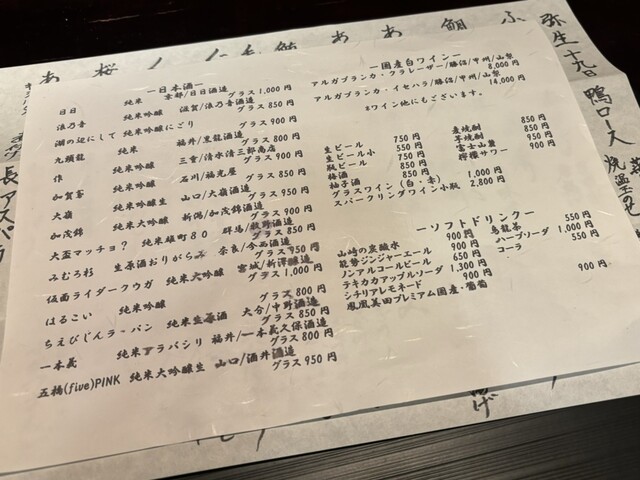 ー日本酒ー
日日 純米 京都/日日酒造 グラス 1,000 円
浪乃音 純米吟醸 滋賀/浪乃音酒造 グラス 850 円
湖の辺にして 純米吟醸にごり グラス 900 円
九頭龍 純米 福井/黒龍酒造 グラス 800 円
作 純米吟醸 三重/清水清三郎商店 グラス 900 円
加賀鳶 純米吟醸 石川/福光屋 グラス 850 円
大嶺 純米吟醸生 山口/大嶺酒造 グラス 950 円
加茂錦 純米大吟醸 新潟/加茂錦酒造 グラス 900 円
大盃マッチョ? 純米雄町80 群馬/牧野酒造 グラス 850 円
みむろ杉 生原酒おりがらみ 奈良/今西酒造 グラス 950 円
仮面ライダークウガ 純米大吟醸 宮城/新澤醸造 グラス 1,000 円
はるこい 純米吟醸 グラス 800 円
ちえびじんラーパン 純米生原酒 大分/中野酒造 グラス 850 円
一本義 純米アラバシリ 福井/一本義久保酒造 グラス 800 円
五橋(five)PINK 純米大吟醸生 山口/酒井酒造 グラス 950 円
ー国産白ワインー
アルガブランカ・クラレーザー/勝沼/甲州/山梨 8,000 円
アルガブランカ・イセハラ/勝沼/甲州/山梨 14,000 円
※ワイン他にもございます。
生ビール 750 円
生ビール小 550 円
瓶ビール 750 円
梅酒 850 円
柚子酒 850 円
グラスワイン (白・赤) 1,000 円
スパークリングワイン小瓶 2,800 円
麦焼酎 850 円
芋焼酎 850 円
富士山麓 950 円
檸檬サワー 900 円
ーソフトドリンクー
山崎の炭酸水 900 円
能勢ジンジャーエール 900 円
ノンアルコールビール 650 円
テキカカアップルソーダ 1,300 円
シチリアレモネード 900 円
鳳凰美田プレミアム国産・葡萄 900 円
烏龍茶 550 円
ハーブソーダ 1,000 円
コーラ 550 円
弥生十九日
鴨ロース